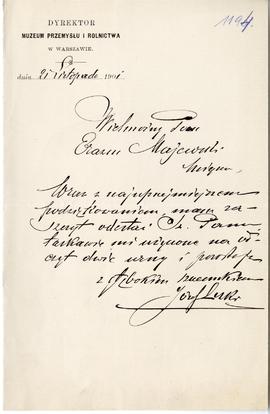 1194.
DYREKTOR
MUZEUM PRZEMYSŁU I ROLNICTWA
W WARSZAWIE.
dnia 21 Listopada 1901
Wielmożny Pan
Erazm Majewski
Wraz z najuprzejmiejszem
podziękowaniem, mam za-
szczyt odesłać Sz. Panu
łaskawie mi użyczone na od-
czyt dwie urny i pozostaję
z głębokim szacunkiem
Józef Leski